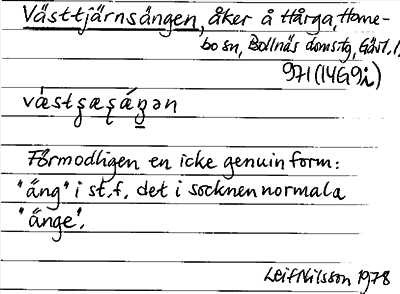 Västtjärnsängen, åker å Hårga, Hane-
bo sn, Bollnäs domstg, Gävl. l.
971 (14G9i)
Förmodligen en icke genuin form:
"äng" i st. f. det i socknen normala
"änge".
Leif Nilsson 1978